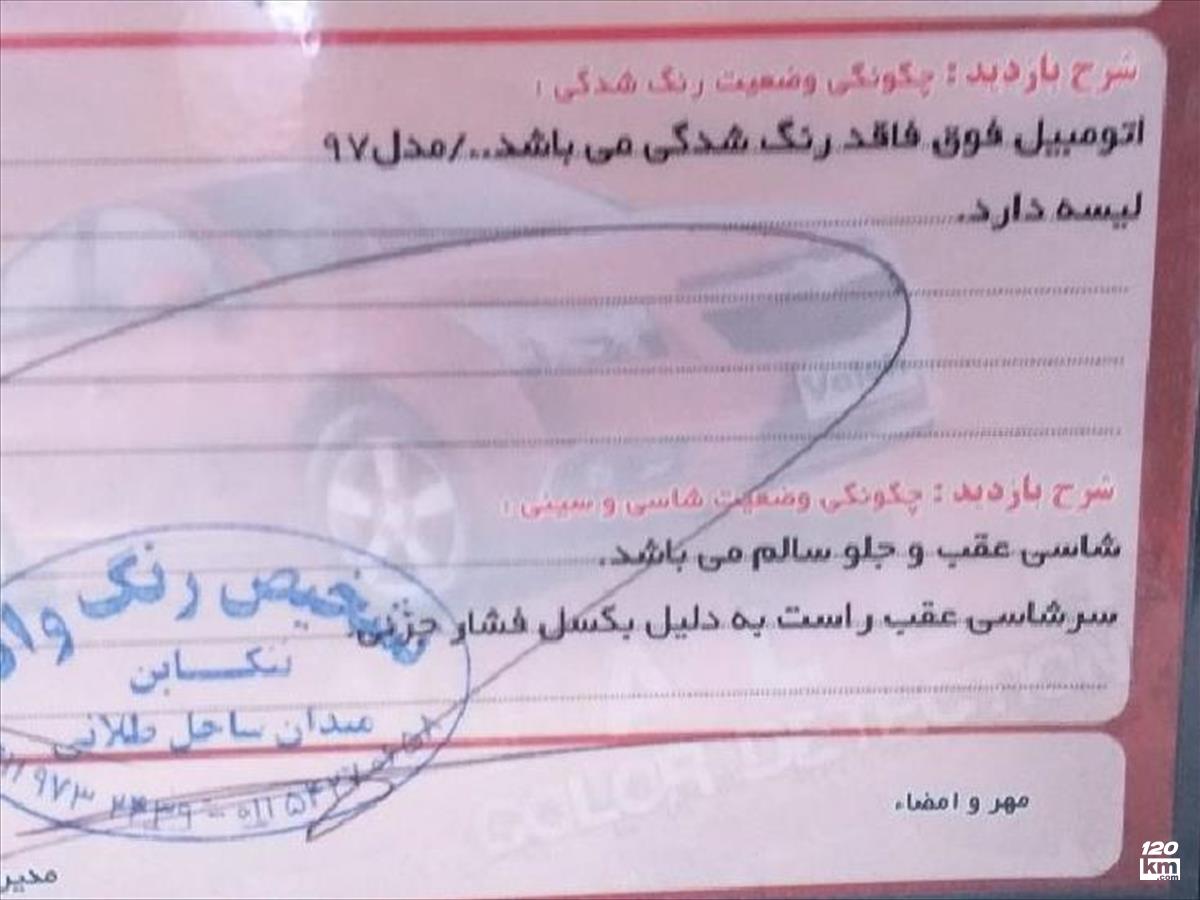 شرح بازدید : چگونگی وضعیت رنگ شدگی :
اتومبیل فوق فاقد رنگ شدگی می باشد../مدل۹۷
لیسه دارد.
شرح بازدید : چگونگی وضعیت شاسی و سینی :
شاسی عقب و جلو سالم می باشد.
سرشاسی عقب راست به دلیل بکسل فشار جزئی
تشخیص رنگ
تنکابن
میدان ساحل طلائی
COLOR DETECTION
مهر و امضاء
مدیر
120
km
.com